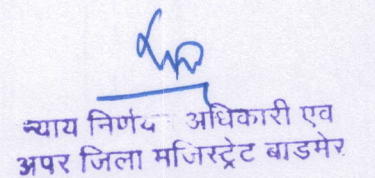 न्याय निर्णय अधिकारी एव
अपर जिला मजिस्ट्रेट बाडमेर